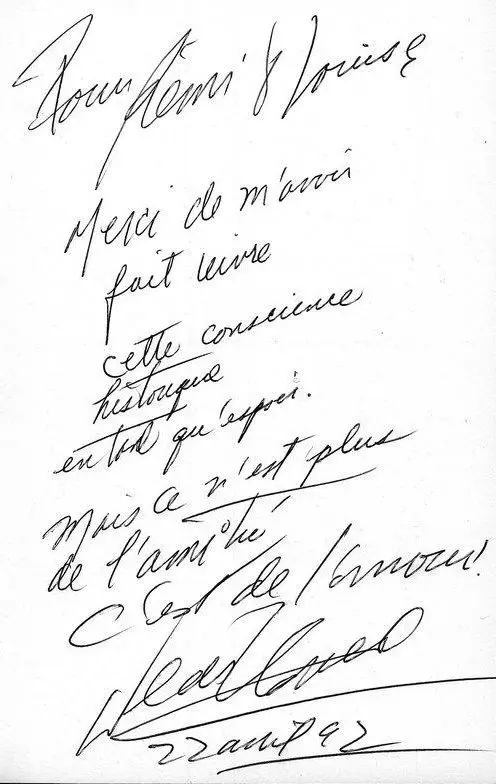 Pour Rémi & Louise
Merci de m'avoir
fait vivre
cette conscience
historique
en tant qu'espoir.
Mais ce n'est plus
de l'amitié
C'est de l'amour.
Jean
22 avril 92